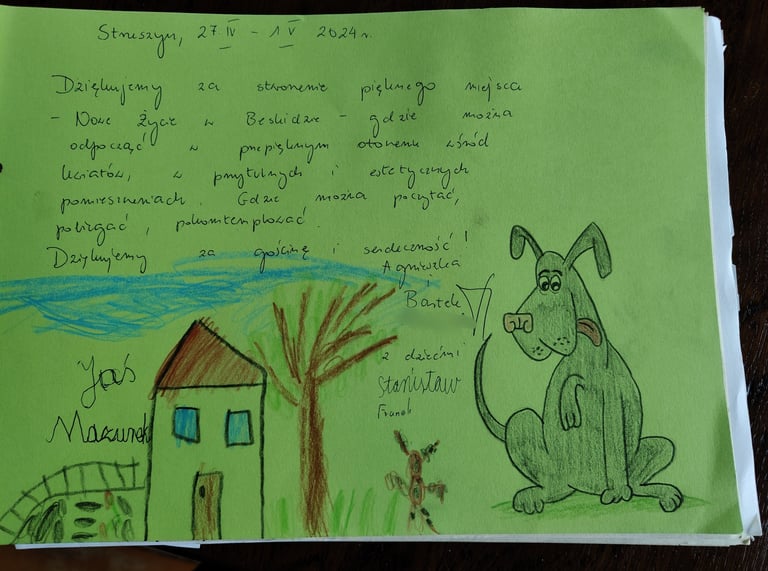 Struszyn, 27 IV - 1 V 2024 r.
Dziękujemy za stworzenie pięknego miejsca
- Nowe Życie w Beskidzie - gdzie można
odpocząć w przepięknym otoczeniu wśród
kwiatów, w przytulnych i estetycznych
pomieszczeniach. Gdzie można poczytać,
pobiegać, pokontemplować.
Dziękujemy za gościnę i serdeczność!
Agnieszka
i
Bartek
z dziećmi
Stanisław
Franek
Jaś
Mazurek